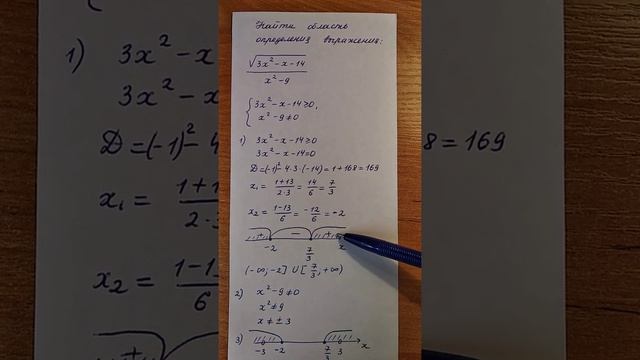 Найти область
определения выражения:
√3x² - x - 14
x² - 9
{ 3x² - x - 14 ≥ 0,
x² - 9 ≠ 0
1) 3x² - x - 14 ≥ 0
3x² - x - 14 = 0
D = (-1)² - 4·3·(-14) = 1 + 168 = 169
x₁ = 1+13/2·3 = 14/6 = 7/3
x₂ = 1-13/6 = -12/6 = -2
+ − +
-2 7/3 x
(-∞; -2] ∪ [7/3; +∞)
2) x² - 9 ≠ 0
x² ≠ 9
x ≠ ± 3
3) x
-3 -2 7/3 3